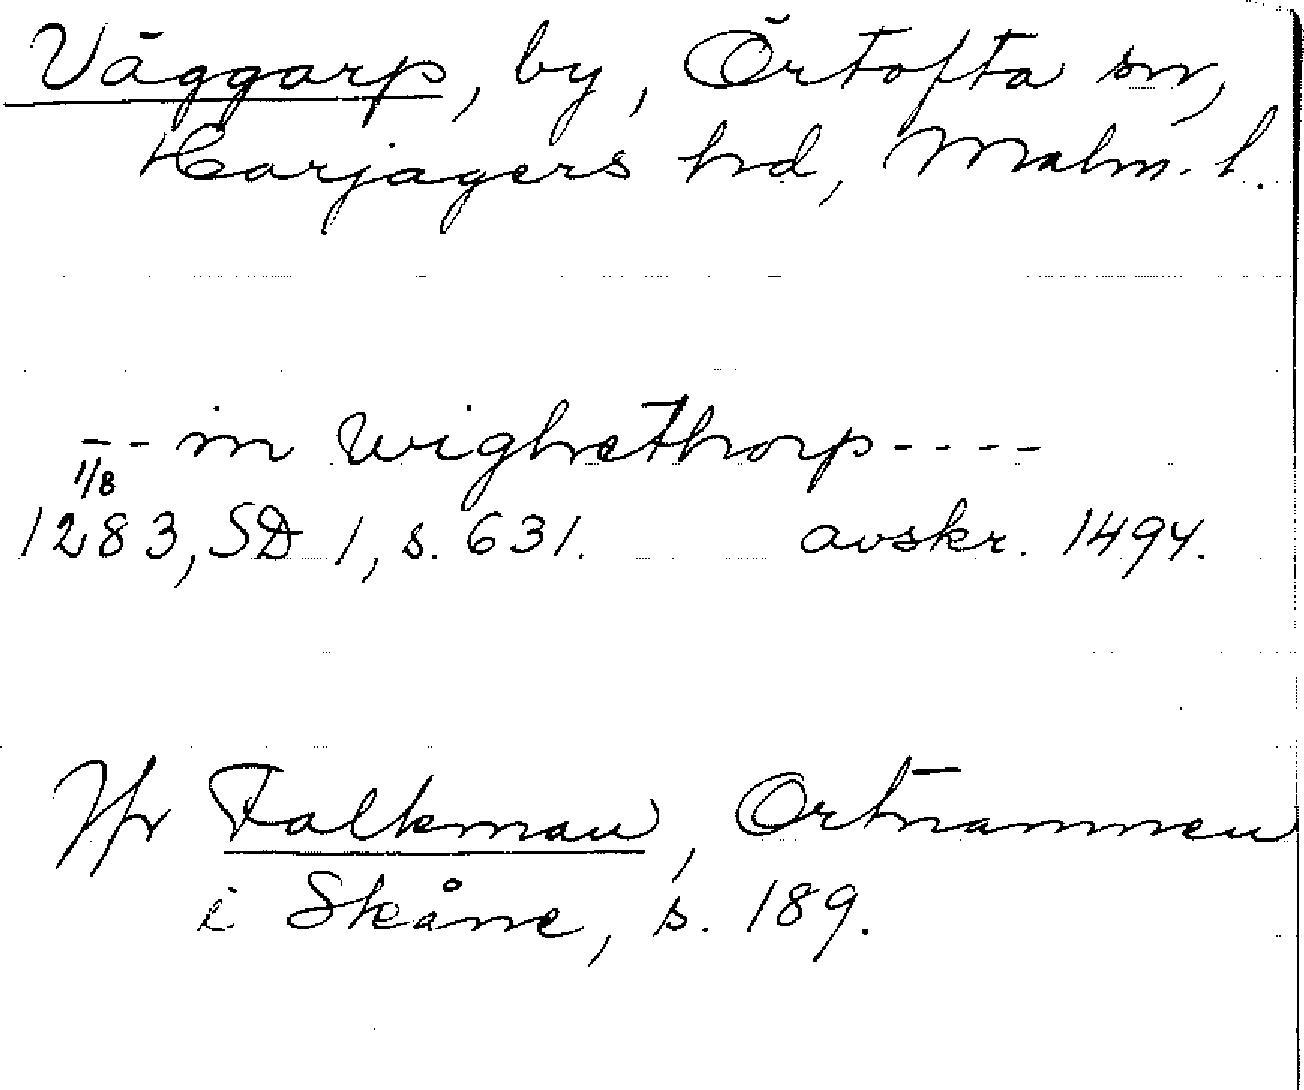 Väggarp, by, Örtofta sn,
Harjagers hd, Malm. l.
--in Wighethorp----
1/8
1283, SD 1, s. 631. avskr. 1494.
Jfr Falkman, Ortnamnen
i Skåne, s. 189.